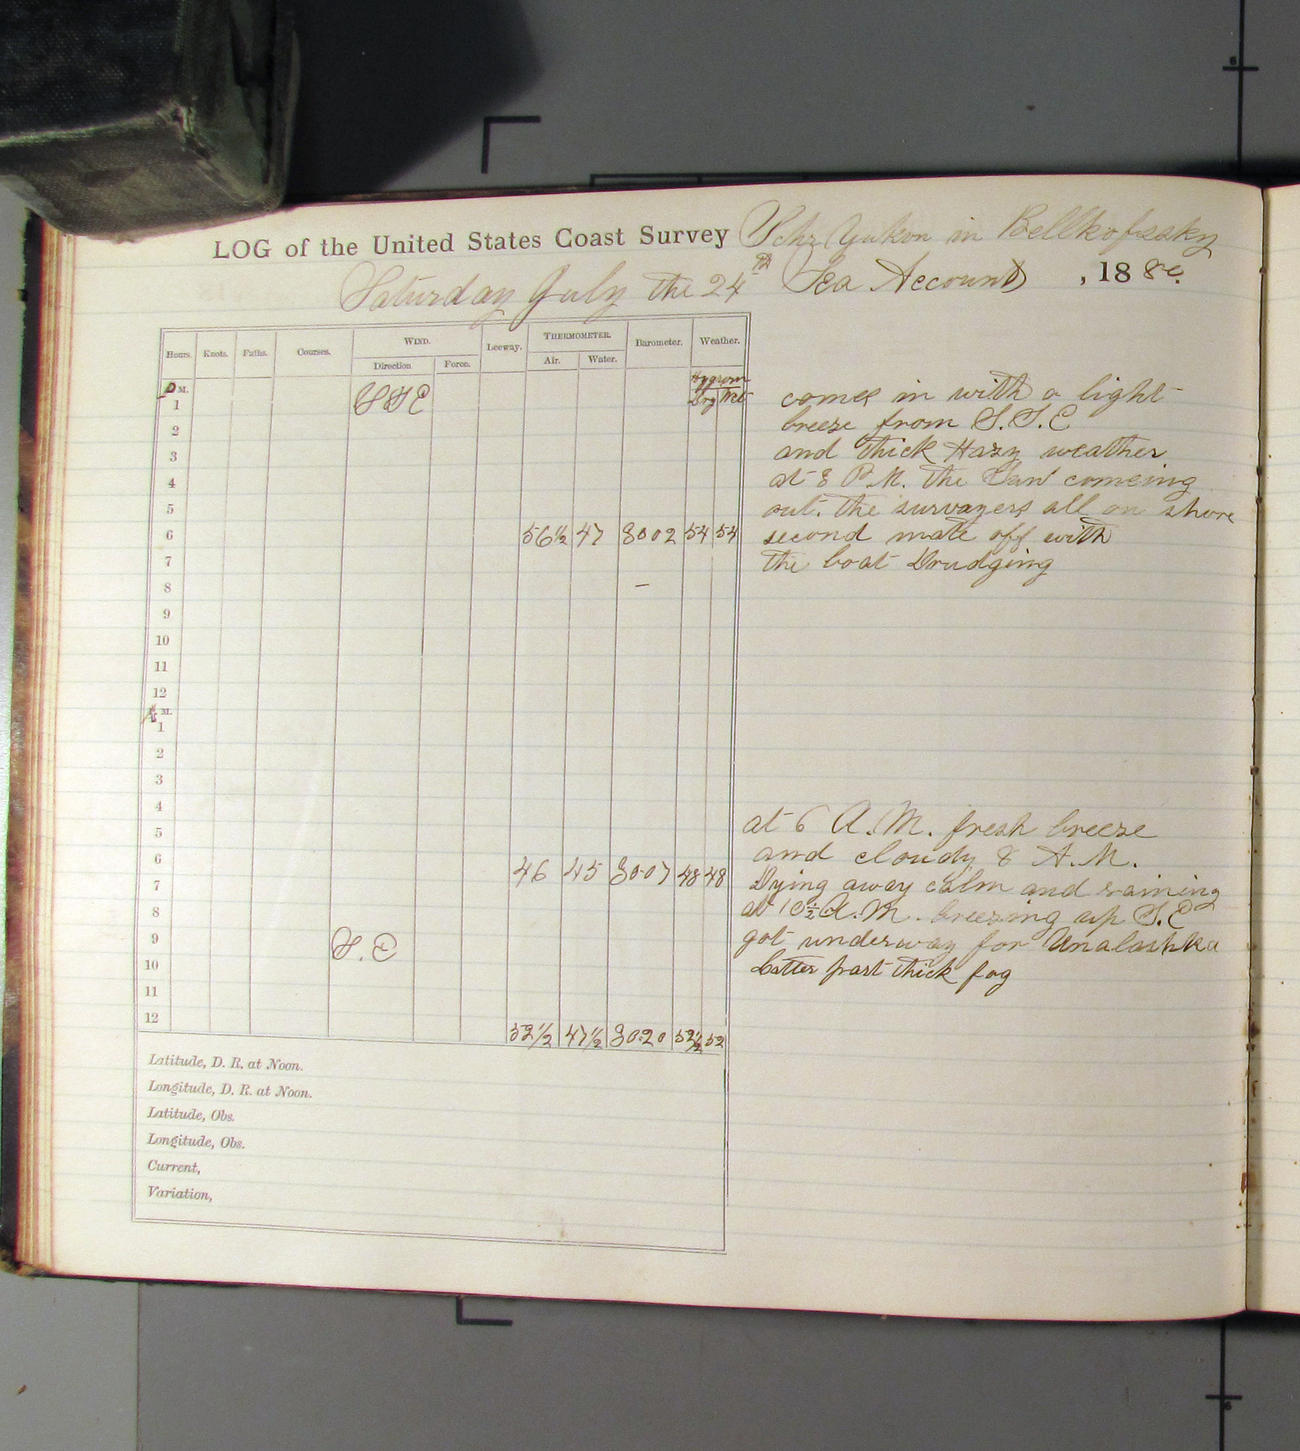 LOG of the United States Coast Survey Schr Yukon in Bellkofssky
Saturday July the 24th Sea Account, 1880.
Hours. Knots. Faths. Courses. WIND. Leeway. THERMOMETER. Barometer. Weather.
Direction Force. Air. Water.
P M. Hygrom
1 SSE Dry Wet
2
3
4
5
6 56½ 47 3002 54 54
7
8 –
9
10
11
12
A M.
1
2
3
4
5
6 46 45 30.07 48 48
7
8
9 S.E
10
11
12 52½ 47½ 30.20 52½ 52
Latitude, D. R. at Noon.
Longitude, D. R. at Noon.
Latitude, Obs.
Longitude, Obs.
Current,
Variation,
comes in with a light
breeze from S.S.E
and thick Hazy weather
at 8 P.M. the comeing
out. the survayers all on shore
second mate off with
the boat Drudging
at 6 A.M. fresh breeze
and cloudy 8 A.M.
Dying away calm and raining
at 10½ A.M. breezing up S.E
got underway for Unalashka
latter part thick fog